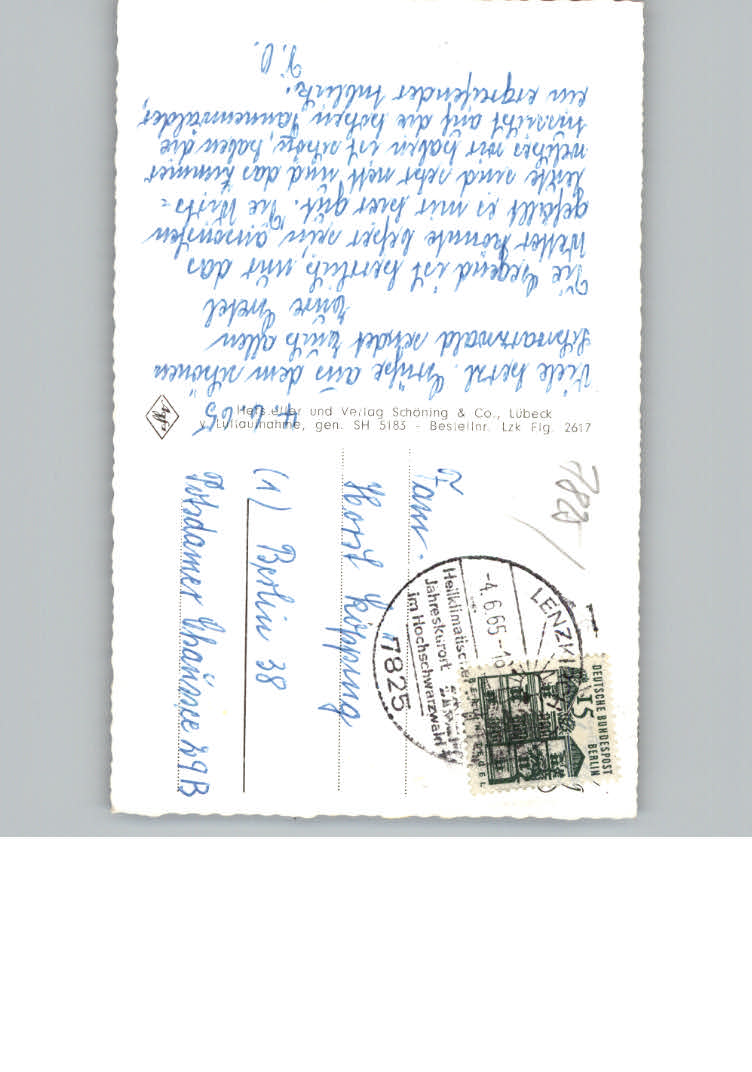 4.6.65
Viele herzl. Grüße aus dem schönen
Schwarzwald sendet Euch allen
Eure Gretel
Die Gegend ist herrlich, nur das
Wetter könnte beßer sein, ansonsten
gefällt es mir hier gut. Die Wirts-
leute sind sehr nett und das Zimmer
welches wir haben ist schön, haben die
Aussicht auf die hohen Tannenwälder,
ein ergreifender Anblick.
Hersteller und Verlag Schöning & Co., Lübeck
Luftaufnahme, gen. SH 5183 - Bestellnr. Lzk Flg. 2617
Agfa
7825
Fam.
Horst Köpping
(1) Berlin 38
Potsdamer Chaussee 29B
LENZKIRCH
-4.6.65-18
Heilklimatischer
Jahreskurort
im Hochschwarzwald
7825
DEUTSCHE BUNDESPOST
BERLIN
15